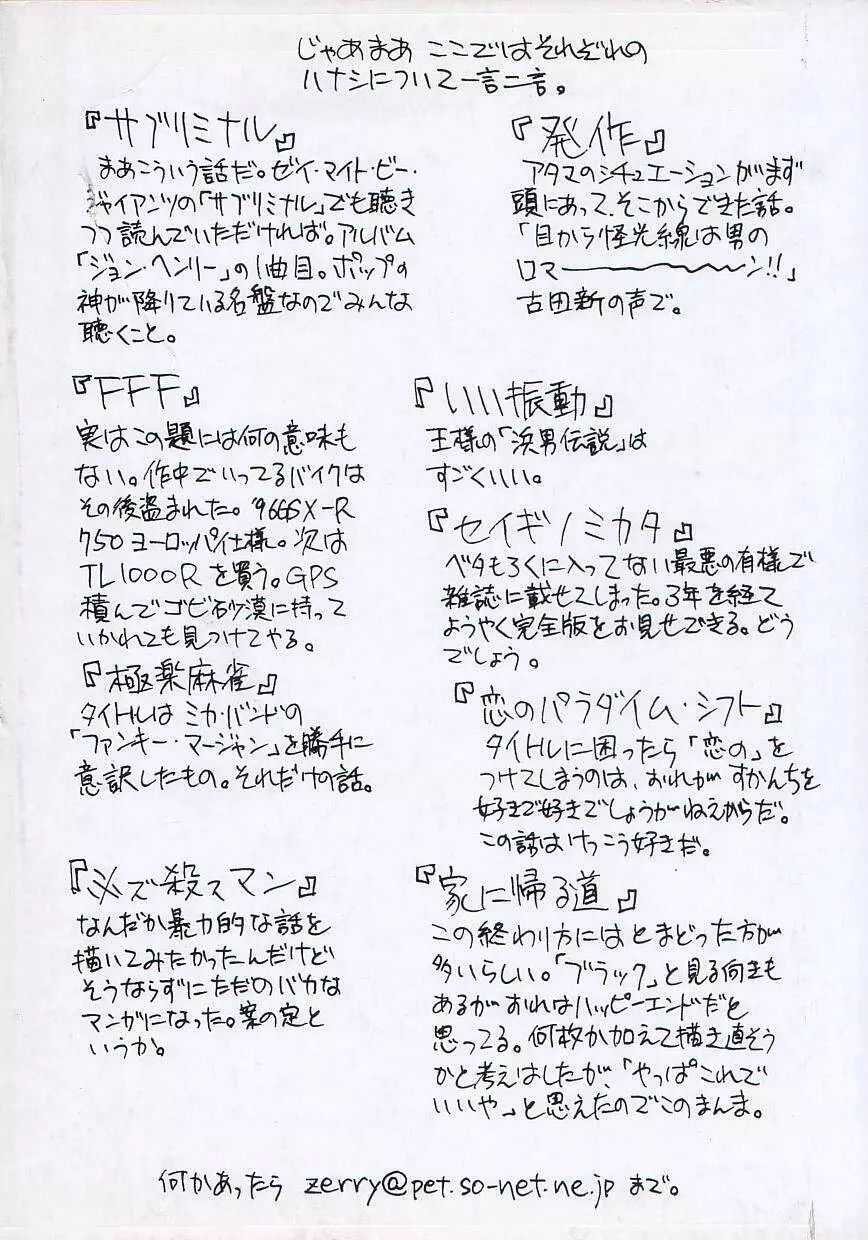 じゃあまあ ここではそれぞれの
ハナシについて一言二言。
『サブリミナル』
まあこういう話だ。ゼイ・マイト・ビー・
ジャイアンツの「サブリミナル」でも聴き
つつ読んでいただければ。アルバム
「ジョン・ヘンリー」の1曲目。ポップの
神が降りている名盤なのでみんな
聴くこと。
『FFF』
実はこの題には何の意味も
ない。作中でいってるバイクは
その後盗まれた。'96GSX-R
750ヨーロッパ仕様。次は
TL1000Rを買う。GPS
積んでゴビ砂漠に持って
いかれても見つけてやる。
『極楽麻雀』
タイトルは ミカ・バンドの
「ファンキー・マージャン」を勝手に
意訳したもの。それだけの話。
『必ズ殺スマン』
なんだか暴力的な話を
描いてみたかったんだけど
そうならずにただのバカな
マンガになった。案の定と
いうか。
『発作』
アタマのシチュエーションがまず
頭にあって、そこからできた話。
「目から怪光線は男の
ロマ〜〜〜ン!!」
古田新の声で。
『いい振動』
王様の「浜男伝説」は
すごくいい。
『セイギノミカタ』
ベタもろくに入ってない最悪の有様で
雑誌に載せてしまった。3年を経て
ようやく完全版をお見せできる。どう
でしょう。
『恋のパラダイム・シフト』
タイトルに困ったら「恋の」を
つけてしまうのは、おれが すかんちを
好きで好きでしょうがねえからだ。
この話はけっこう好きだ。
『家に帰る道』
この終わり方にはとまどった方が
多いらしい。「ブラック」と見る向きも
あるが おれはハッピーエンドだと
思ってる。何枚か加えて描き直そう
かと考えはしたが、「やっぱこれで
いいや」と思えたのでこのまんま。
何かあったら zerry@pet.so-net.ne.jp まで。